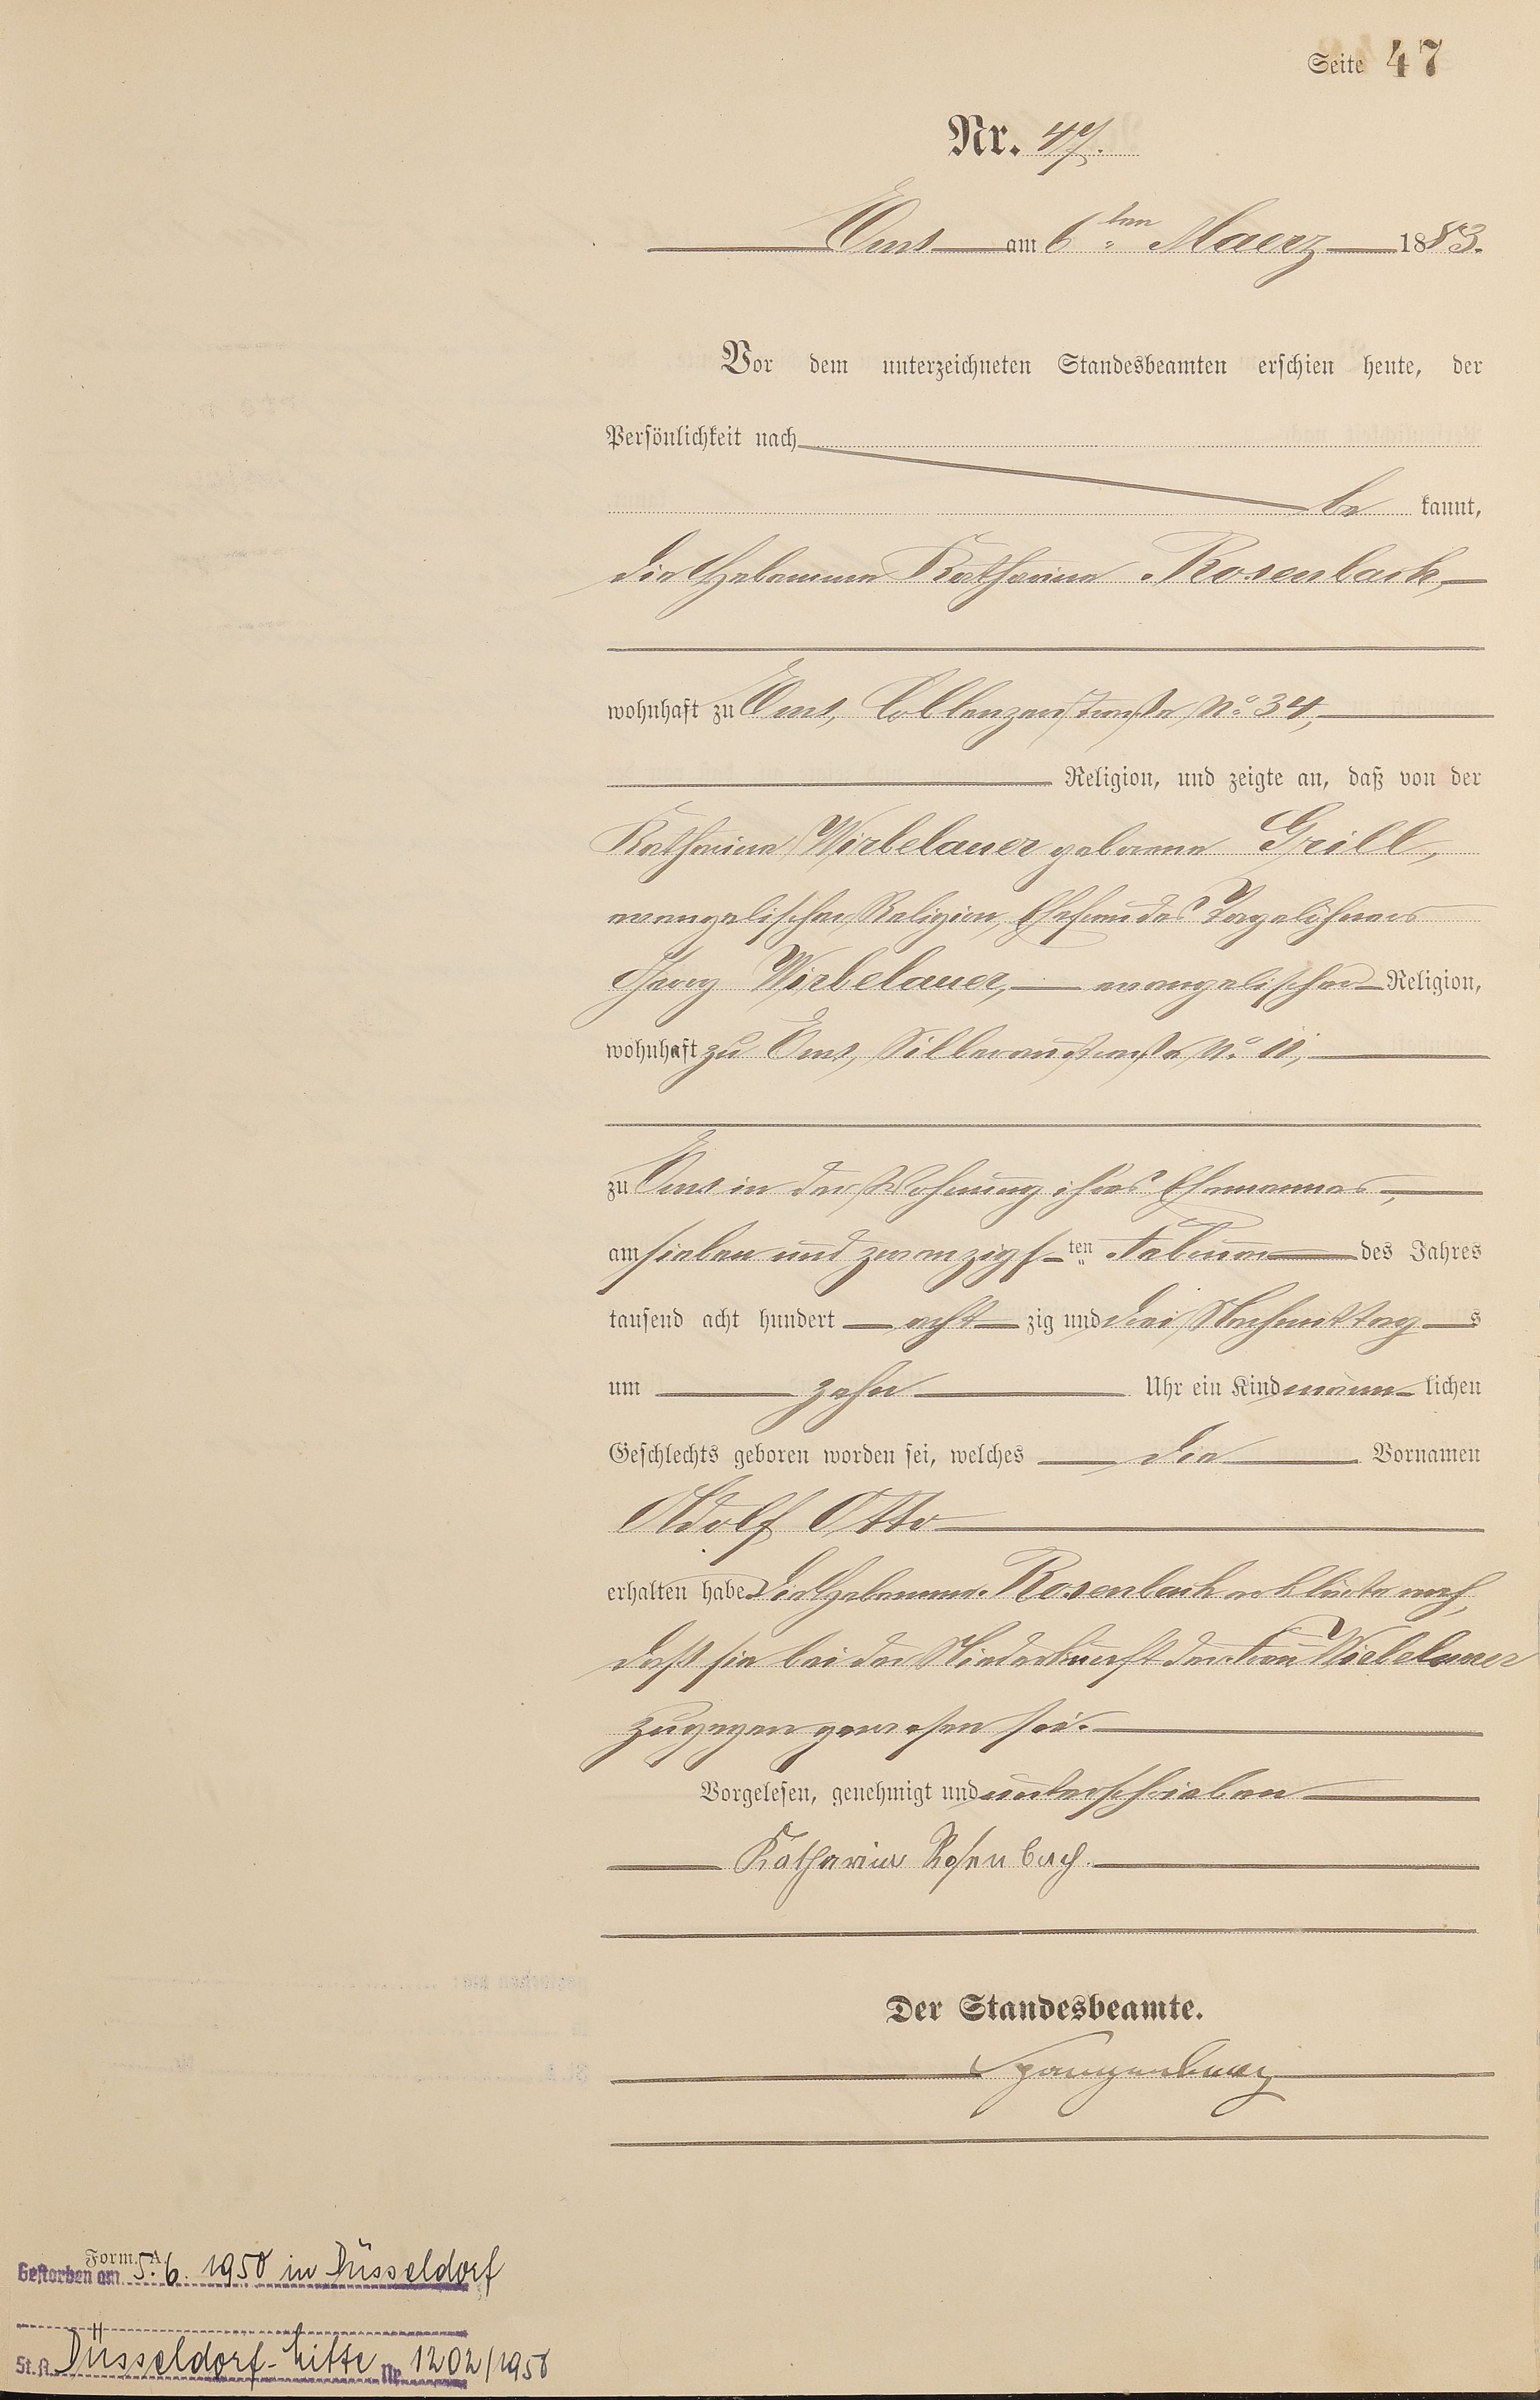 Seite 47
Nr. 47.
Ems am 6ten Maerz 1883.
Vor dem unterzeichneten Standesbeamten erschien heute, der
Persönlichkeit nach
be kannt,
die Hebamme Katharina Rosenbach,
wohnhaft zu Ems, Coblenzerstraße No 34,
Religion, und zeigte an, daß von der
Katharina Wirbelauer geborene Grill,
evangelischer Religion, Ehefrau des Tagelöhners
Georg Wirbelauer, evangelischer Religion,
wohnhaft zu Ems, Silberaustraße No 11,
zu Ems in der Wohnung ihres Ehemannes,
am sieben und zwanzigsten Februar des Jahres
tausend acht hundert acht zig und drei Nachmittags
um zehn Uhr ein Kind männlichen
Geschlechts geboren worden sei, welches die Vornamen
Adolf Otto
erhalten habe. Die Hebamme Rosenbach erklärte noch,
daß sie bei der Niederkunft der Frau Wirbelauer
zugegen gewesen sei.
Vorgelesen, genehmigt und unterschrieben
Katharina Rosenbach.
Der Standesbeamte.
Spangenberg
Form. A.
Gestorben am 5.6. 1950 in Düsseldorf
St.A. Düsseldorf-Mitte Nr. 1202/1950